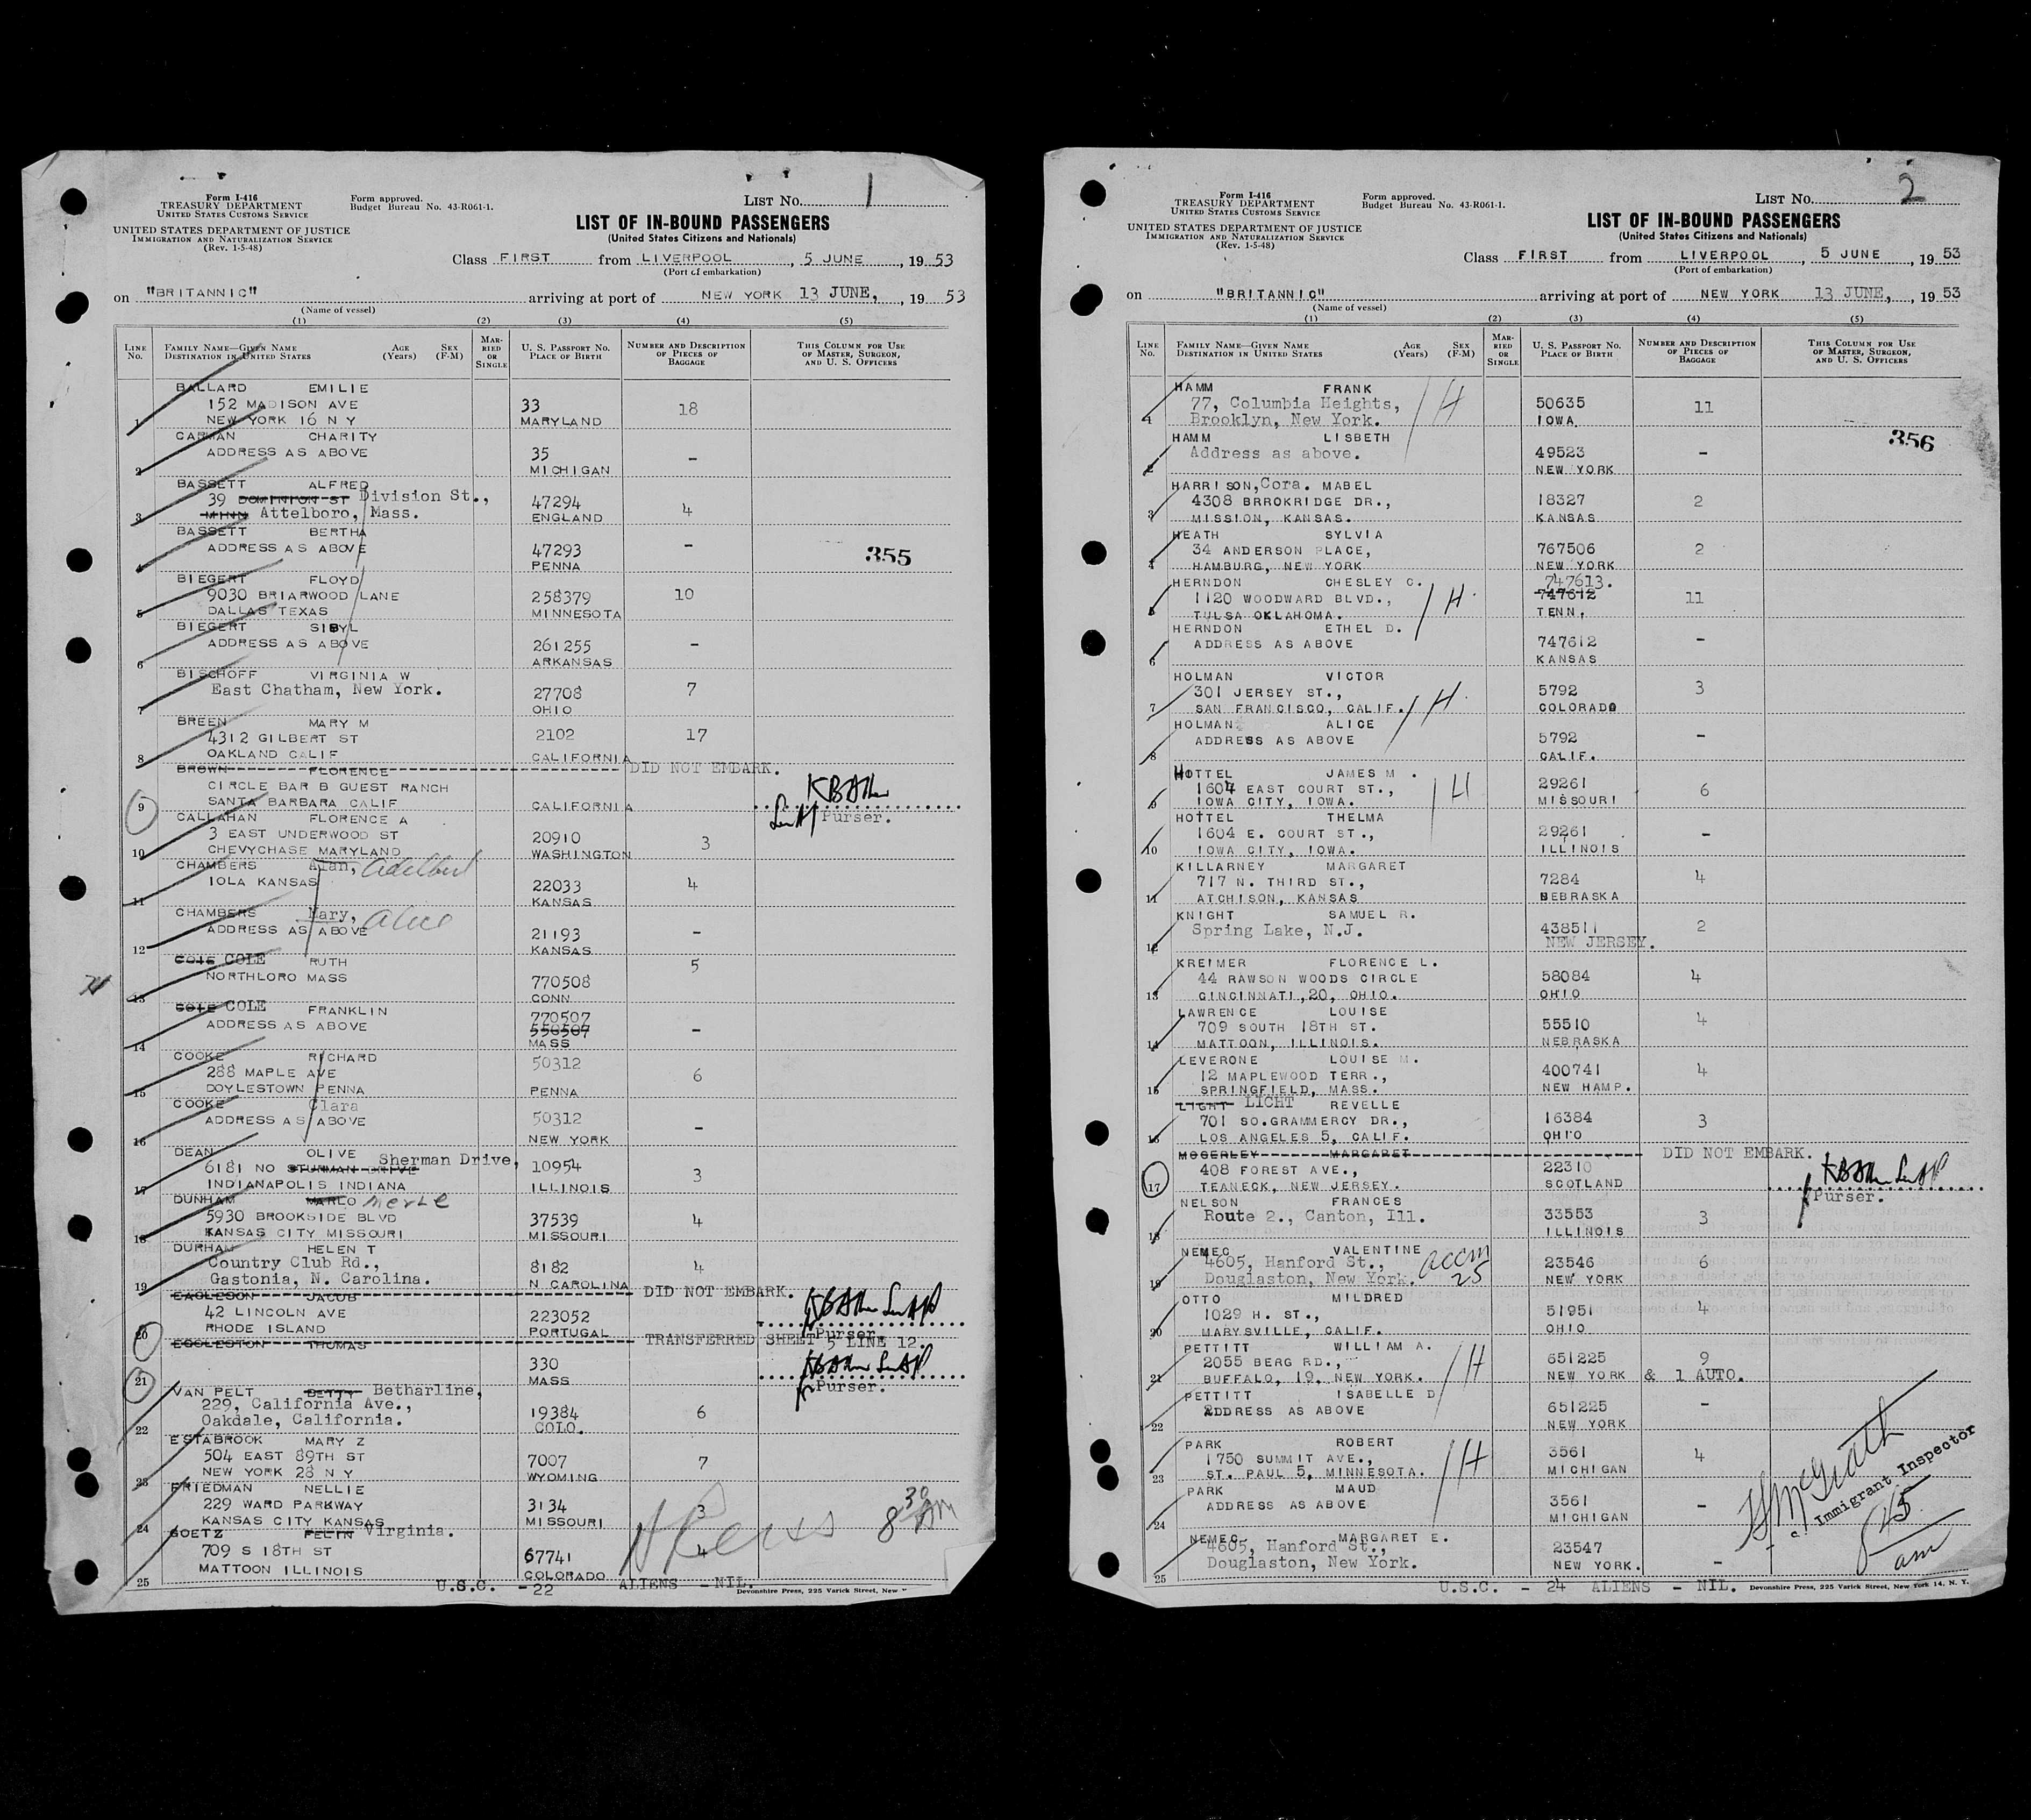 1
Form I-416
TREASURY DEPARTMENT
UNITED STATES CUSTOMS SERVICE
Form approved.
Budget Bureau No. 43-R061-1.
LIST NO.
UNITED STATES DEPARTMENT OF JUSTICE
IMMIGRATION AND NATURALIZATION SERVICE
(Rev. 1-5-48)
LIST OF IN-BOUND PASSENGERS
(United States Citizens and Nationals)
Class FIRST from LIVERPOOL, 5 JUNE, 19 53
(Port of embarkation)
on "BRITANNIC" arriving at port of NEW YORK 13 JUNE, 19 53
(Name of vessel)
(1) (2) (3) (4) (5)
LINE No. FAMILY NAME—GIVEN NAME DESTINATION IN UNITED STATES AGE (Years) SEX (F-M) MARRIED OR SINGLE U. S. PASSPORT NO. PLACE OF BIRTH NUMBER AND DESCRIPTION OF PIECES OF BAGGAGE THIS COLUMN FOR USE OF MASTER, SURGEON, AND U. S. OFFICERS
BALLARD EMILIE
152 MADISON AVE 33 18
1 NEW YORK 16 N Y MARYLAND
CARMAN CHARITY
ADDRESS AS ABOVE 35 -
2 MICHIGAN
BASSETT ALFRED
39 DOMINION ST Division St., 47294 4
3 MINN Attelboro, Mass. ENGLAND
BASSETT BERTHA
ADDRESS AS ABOVE 47293 -
4 PENNA
355
BIEGERT FLOYD
9030 BRIARWOOD LANE 258379 10
5 DALLAS TEXAS MINNESOTA
BIEGERT SIBYL
ADDRESS AS ABOVE 261255 -
6 ARKANSAS
BISCHOFF VIRGINIA W
East Chatham, New York. 27708 7
7 OHIO
BREEN MARY M
4312 GILBERT ST 2102 17
8 OAKLAND CALIF CALIFORNIA
BROWN FLORENCE DID NOT EMBARK.
CIRCLE BAR B GUEST RANCH
9 SANTA BARBARA CALIF CALIFORNIA
Purser.
CALLAHAN FLORENCE A
3 EAST UNDERWOOD ST 20910 3
10 CHEVYCHASE MARYLAND WASHINGTON
CHAMBERS Alan, Adelbert
IOLA KANSAS 22033 4
11 KANSAS
CHAMBERS Mary, Alice
ADDRESS AS ABOVE 21193 -
12 KANSAS
COLE COLE RUTH 5
NORTHLORO MASS 770508
13 CONN
COLE COLE FRANKLIN 770507
ADDRESS AS ABOVE 550507 -
14 MASS
COOKE RICHARD 50312
288 MAPLE AVE 6
15 DOYLESTOWN PENNA PENNA
COOKE Clara
ADDRESS AS ABOVE 50312 -
16 NEW YORK
DEAN OLIVE
6181 NO STURMAN DRIVE Sherman Drive, 10954 3
17 INDIANAPOLIS INDIANA ILLINOIS
DUNHAM MARLO Merle
5930 BROOKSIDE BLVD 37539 4
18 KANSAS CITY MISSOURI MISSOURI
DURHAM HELEN T
Country Club Rd., 8182 4
19 Gastonia, N. Carolina. N CAROLINA
EAGLESON JACOB DID NOT EMBARK.
42 LINCOLN AVE 223052
20 RHODE ISLAND PORTUGAL
Purser.
EGGLESTON THOMAS TRANSFERRED SHEET 5 LINE 12.
330
21 MASS
Purser.
VAN PELT BETTY Betharline,
229, California Ave., 19384 6
22 Oakdale, California. COLO.
ESTABROOK MARY Z
504 EAST 89TH ST 7007 7
23 NEW YORK 28 N Y WYOMING
FRIEDMAN NELLIE
229 WARD PARKWAY 3134 3
24 KANSAS CITY KANSAS MISSOURI
8 30 AM
GOETZ FELIN Virginia.
709 S 18TH ST 67741 4
25 MATTOON ILLINOIS COLORADO
U.S.C. - 22 ALIENS - NIL. Devonshire Press, 225 Varick Street, New
2
Form I-416
TREASURY DEPARTMENT
UNITED STATES CUSTOMS SERVICE
Form approved.
Budget Bureau No. 43-R061-1.
LIST NO.
UNITED STATES DEPARTMENT OF JUSTICE
IMMIGRATION AND NATURALIZATION SERVICE
(Rev. 1-5-48)
LIST OF IN-BOUND PASSENGERS
(United States Citizens and Nationals)
Class FIRST from LIVERPOOL, 5 JUNE, 19 53
(Port of embarkation)
on "BRITANNIC" arriving at port of NEW YORK 13 JUNE, 19 53
(Name of vessel)
(1) (2) (3) (4) (5)
LINE No. FAMILY NAME—GIVEN NAME DESTINATION IN UNITED STATES AGE (Years) SEX (F-M) MARRIED OR SINGLE U. S. PASSPORT NO. PLACE OF BIRTH NUMBER AND DESCRIPTION OF PIECES OF BAGGAGE THIS COLUMN FOR USE OF MASTER, SURGEON, AND U. S. OFFICERS
HAMM FRANK H
77, Columbia Heights, 50635 11
1 Brooklyn, New York. IOWA.
356
HAMM LISBETH
Address as above. 49523 -
2 NEW YORK
HARRISON, Cora. MABEL
4308 BRROKRIDGE DR., 18327 2
3 MISSION, KANSAS. KANSAS
HEATH SYLVIA
34 ANDERSON PLACE, 767506 2
4 HAMBURG, NEW YORK NEW YORK
HERNDON CHESLEY C. 747613.
1120 WOODWARD BLVD., H. 747612 11
5 TULSA OKLAHOMA. TENN.
HERNDON ETHEL D.
ADDRESS AS ABOVE 747612
6 KANSAS
HOLMAN VICTOR
301 JERSEY ST., 5792 3
7 SAN FRANCISCO, CALIF. H. COLORADO
HOLMAN ALICE
ADDRESS AS ABOVE 5792 -
8 CALIF.
HOTTEL JAMES M .
1604 EAST COURT ST., H 29261 6
9 IOWA CITY, IOWA. MISSOURI
HOTTEL THELMA
1604 E. COURT ST., 29261 -
10 IOWA CITY, IOWA. ILLINOIS
KILLARNEY MARGARET
717 N. THIRD ST., 7284 4
11 ATCHISON, KANSAS NEBRASKA
KNIGHT SAMUEL R.
Spring Lake, N.J. 438511 2
12 NEW JERSEY.
KREIMER FLORENCE L.
44 RAWSON WOODS CIRCLE 58084 4
13 CINCINNATI,20, OHIO. OHIO
LAWRENCE LOUISE
709 SOUTH 18TH ST. 55510 4
14 MATTOON, ILLINOIS. NEBRASKA
LEVERONE LOUISE M.
12 MAPLEWOOD TERR., 400741 4
15 SPRINGFIELD, MASS. NEW HAMP.
LIGHT LICHT REVELLE
701 SO.GRAMMERCY DR., 16384 3
16 LOS ANGELES 5, CALIF. OHIO
MOGERLEY MARGARET DID NOT EMBARK.
408 FOREST AVE., 22310
17 TEANECK, NEW JERSEY. SCOTLAND
Purser.
NELSON FRANCES
Route 2., Canton, Ill. 33553 3
18 ILLINOIS
NEMEC VALENTINE accm 25
4605, Hanford St., 23546 6
19 Douglaston, New York. NEW YORK
OTTO MILDRED
1029 H. ST., 51951 4
20 MARYSVILLE, CALIF. OHIO
PETTITT WILLIAM A.
2055 BERG RD., H 651225 9
21 BUFFALO, 19, NEW YORK. NEW YORK & 1 AUTO.
PETTITT ISABELLE D
ADDRESS AS ABOVE 651225 -
22 NEW YORK
PARK ROBERT
1750 SUMMIT AVE., H 3561 4
23 ST. PAUL 5, MINNESOTA. MICHIGAN
PARK MAUD
ADDRESS AS ABOVE 3561 -
24 MICHIGAN
McGrath
Immigrant Inspector
8 45 am
NEMEC, MARGARET E.
4605, Hanford St., 23547
25 Douglaston, New York. NEW YORK. -
U.S.C. - 24 ALIENS - NIL. Devonshire Press, 225 Varick Street, New York 14, N. Y.